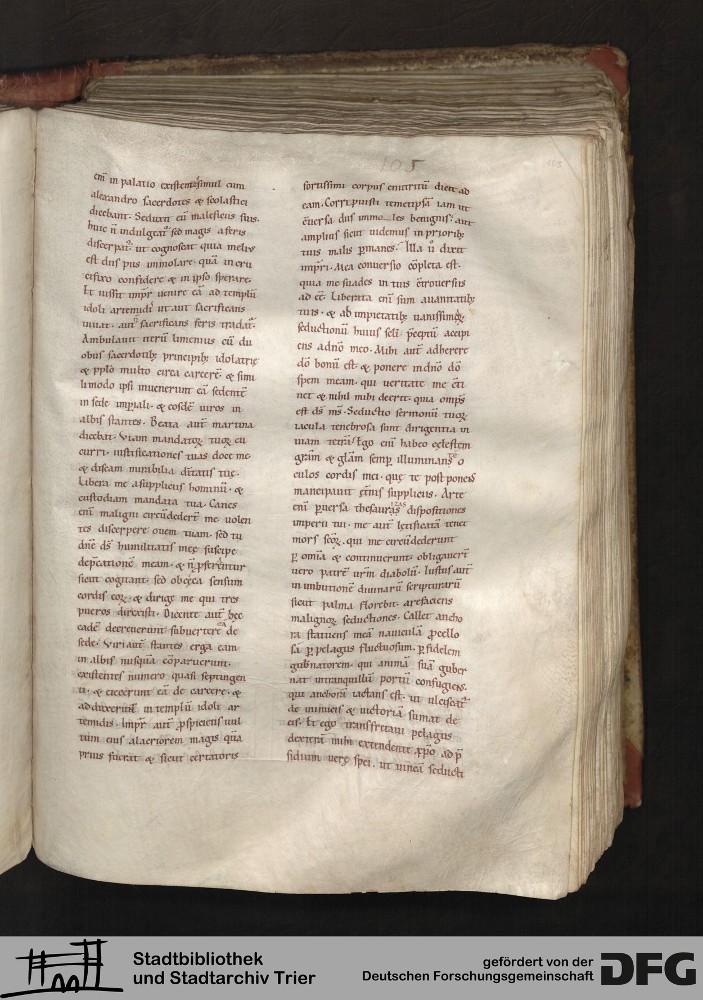 105
103
eni in palatio existentē simul cum
alexandro sacerdotes & scolastici
dicebant. Seduxit eū maleficus suis.
huic ñ indulgeat' sed magis a feris
discerpat'. ut cognoscat quia melius
est diis pus immolare. quā in cru
cifixo confidere & in ipso sperare.
Et iussit impr uenire eā ad templū
idoli artemidis ut aut sacrificans
uiuat. aut sacrificans feris tradat'.
Ambulauit utrū limemus cū du
obus sacerdotib; principib; idolatrię
& pplo multo circa carcerē. & simi
li modo ipsi inuenerunt eā sedentē
in sede impiali. & eosdē uiros in
albis stantes. Beata aut martina
dicebat. Viam mandatoꝝ tuoꝝ cu
curri. iustificationes tuas doce me
& discam mirabilia diuitatis tuę.
Libera me a suppliciis hominū. &
custodiam mandata tua. Canes
eni maligni circūdedert me uolen
tes discerpere ouem tuam. sed tu
dñe ds humilitatis meę suscipe
dep̄cationē meam. & ñ psternt'
sicut cogitant. sed obceca sensum
cordis eoꝝ. & dirige me qui tres
pueros direxisti. Dicente aut hęc
eadē decreuerunt subuertere de
sede. Viri aut stantes erga eam
in albis nusquā cōparuerunt.
existentes numero quasi septingen
ti. & eiecerunt eā de carcere. &
adduxerunt in templū idoli ar
temidis. Impr aut pspiciens uul
tum eius alacriorem magis quā
prius fuerat & sicut certatoris
fortissimi corpus enutritū dicit ad
eam. Corripuisti temetipsā iam ut
cuersa diis immo les benignis. aut
amplius sicut uidemus in priorib;
tuis malis pmanes. Illa u dixit
impri. Mea conuersio cōpleta est.
quia me suades in tuis cōtrouersus
ad cē. Liberata eni sum a uanitatib;
tuis. & ab impietatib; uanissimoꝝ
seductionū huius scli. pceptū accipi
ens a dño meo. Mihi aut adherere
dō bonū est. & ponere in dño dō
spem meam. qui ueritate me cōti
net & nihil mihi deerit. quia omps
est ds ms. Seductio sermonū tuoꝝ
iacula tenebrosa sunt dirigentia in
uiam tetrā. Ego eni habeo cęlestem
grām & glām semp illuminans o
culos cordis mei. quę te post ponens
mancipauit ętnis suppliciis. Arte
eni puersa thesaurizas dispositiones
imperii tui. me aut lętificatā tenet
mors scoꝝ. qui me circūdederunt
p omia & continuerunt. obligauert
uero patrē urm diabolū. Iustus aut
in imbutionē diuinarū scripturarū
sicut palma florebit. arefaciens
malignoꝝ seductiones. Callet ancho
ra statuens meā nauiculā pcello
sā p pelagus fluctuosum. p fidelem
gubnatorem. qui animā suā guber
nat in tranquillū portū confugiens.
qui anchorā iactans est. ut ulciscat'
de inimicis & uictoriā sumat de
eis. Et ego transfretaui pelagus
dexterā mihi extendente xpo. ad p
sidium uerę spei. ut uineā seducti
Stadtbibliothek
und Stadtarchiv Trier
gefördert von der
Deutschen Forschungsgemeinschaft
DFG